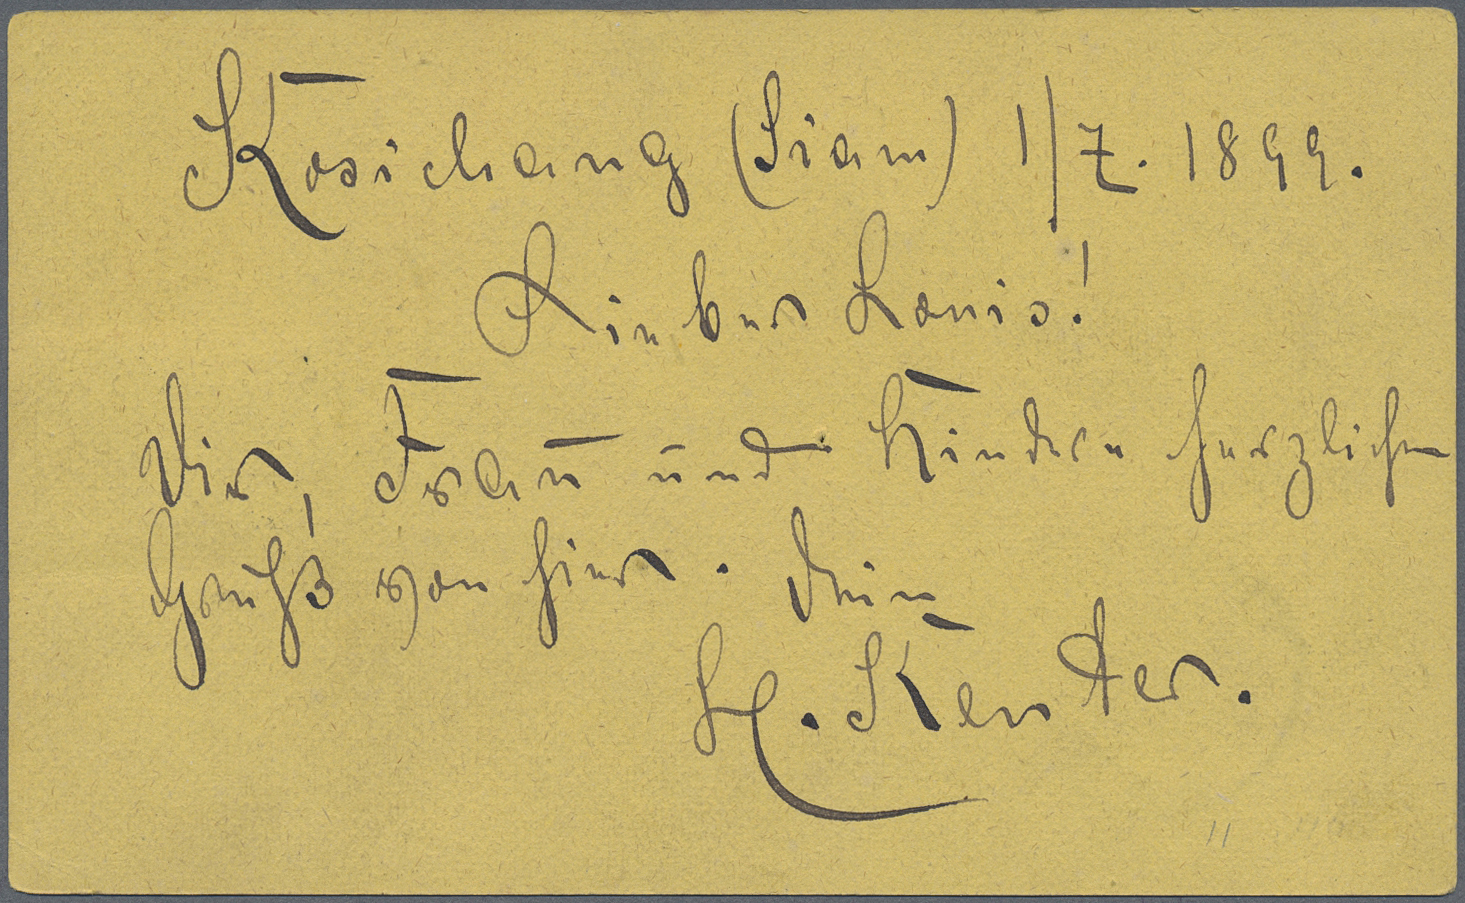 Kosichang (Siam) 1/7. 1899.
Lieber Louis!
Dir, Frau und Kindern herzlichen
Gruß von hier. Dein
H.